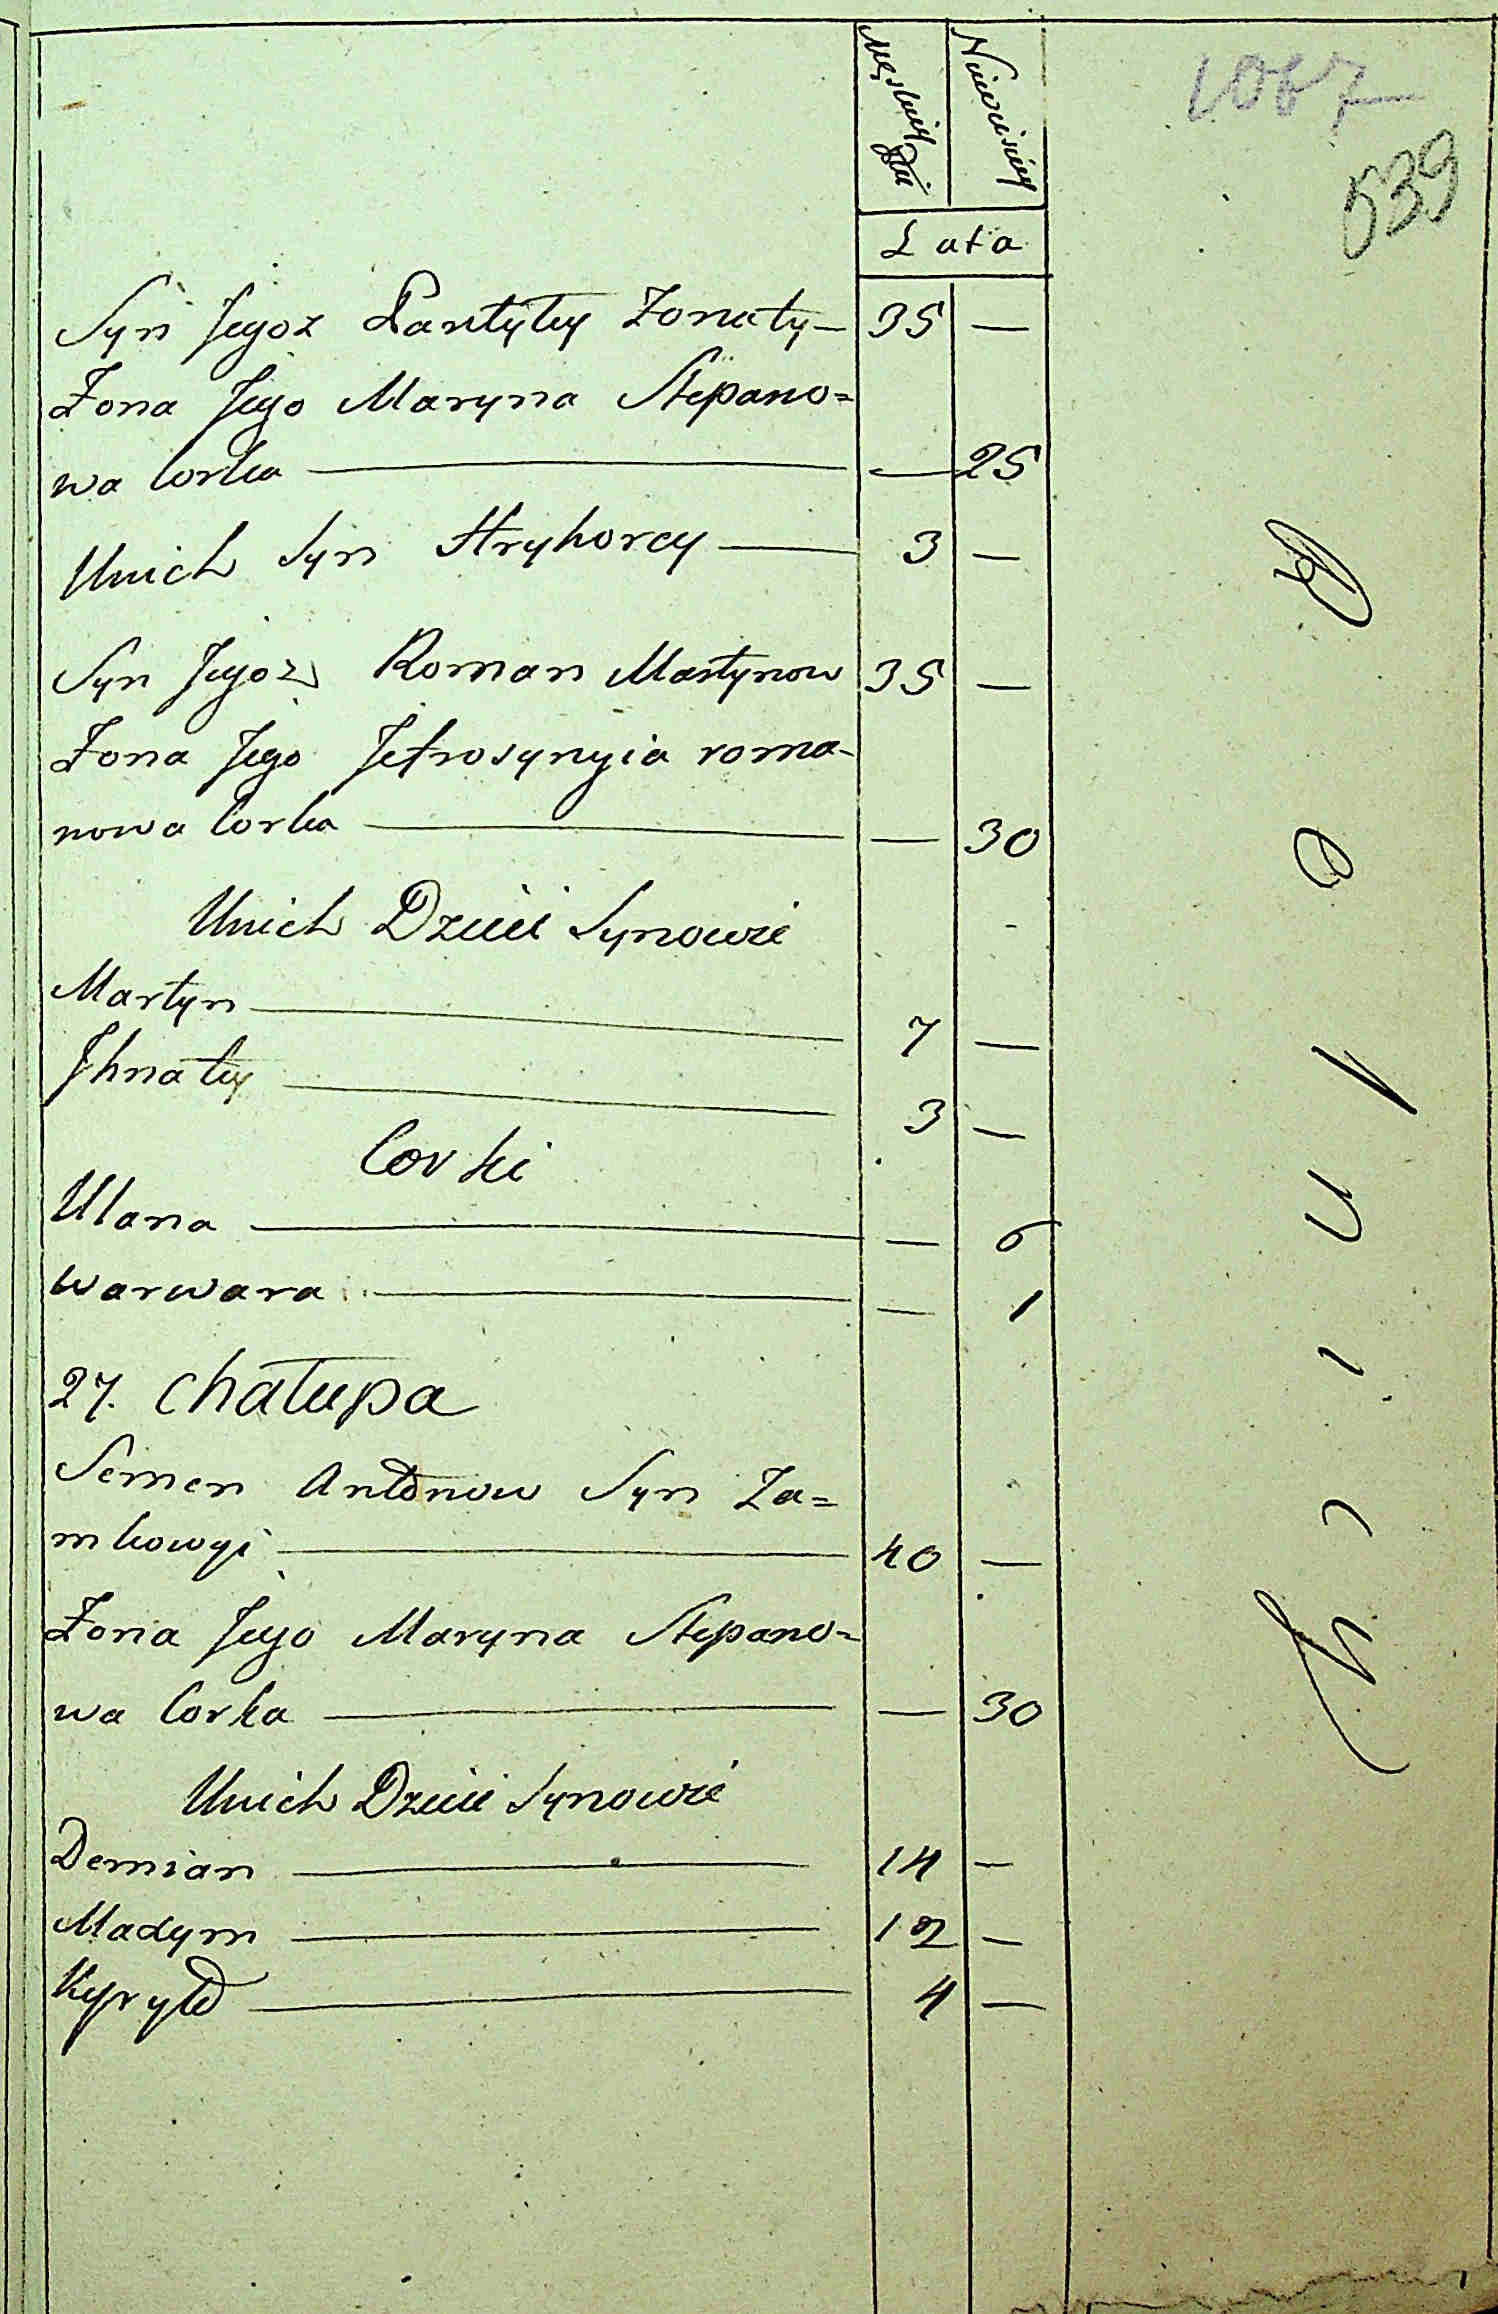 Lata
1067
539
Syn Jegoż Pantyley Żonaty — 35 —
Żona Jego Maryna Stepano=
wa Corka — — 25
Unich Syn Hryhorey — 3 —
Syn Jegoż Roman Martynow 35 —
Żona Jego Jefrosynyia roma-
nowa Corka — — 30
Unich Dzieci Synowie
Martyn — 7 —
Jhnaty — 3 —
Corki
Ulana — — 6
Warwara — — 1
27. Chałupa
Semen Antonow Syn Za=
mkowyi — 40 —
Żona Jego Maryna Stepano=
wa Corka — — 30
Unich Dzieci Synowie
Demian — 14 —
Maxym — 12 —
Kyryło — 4 —